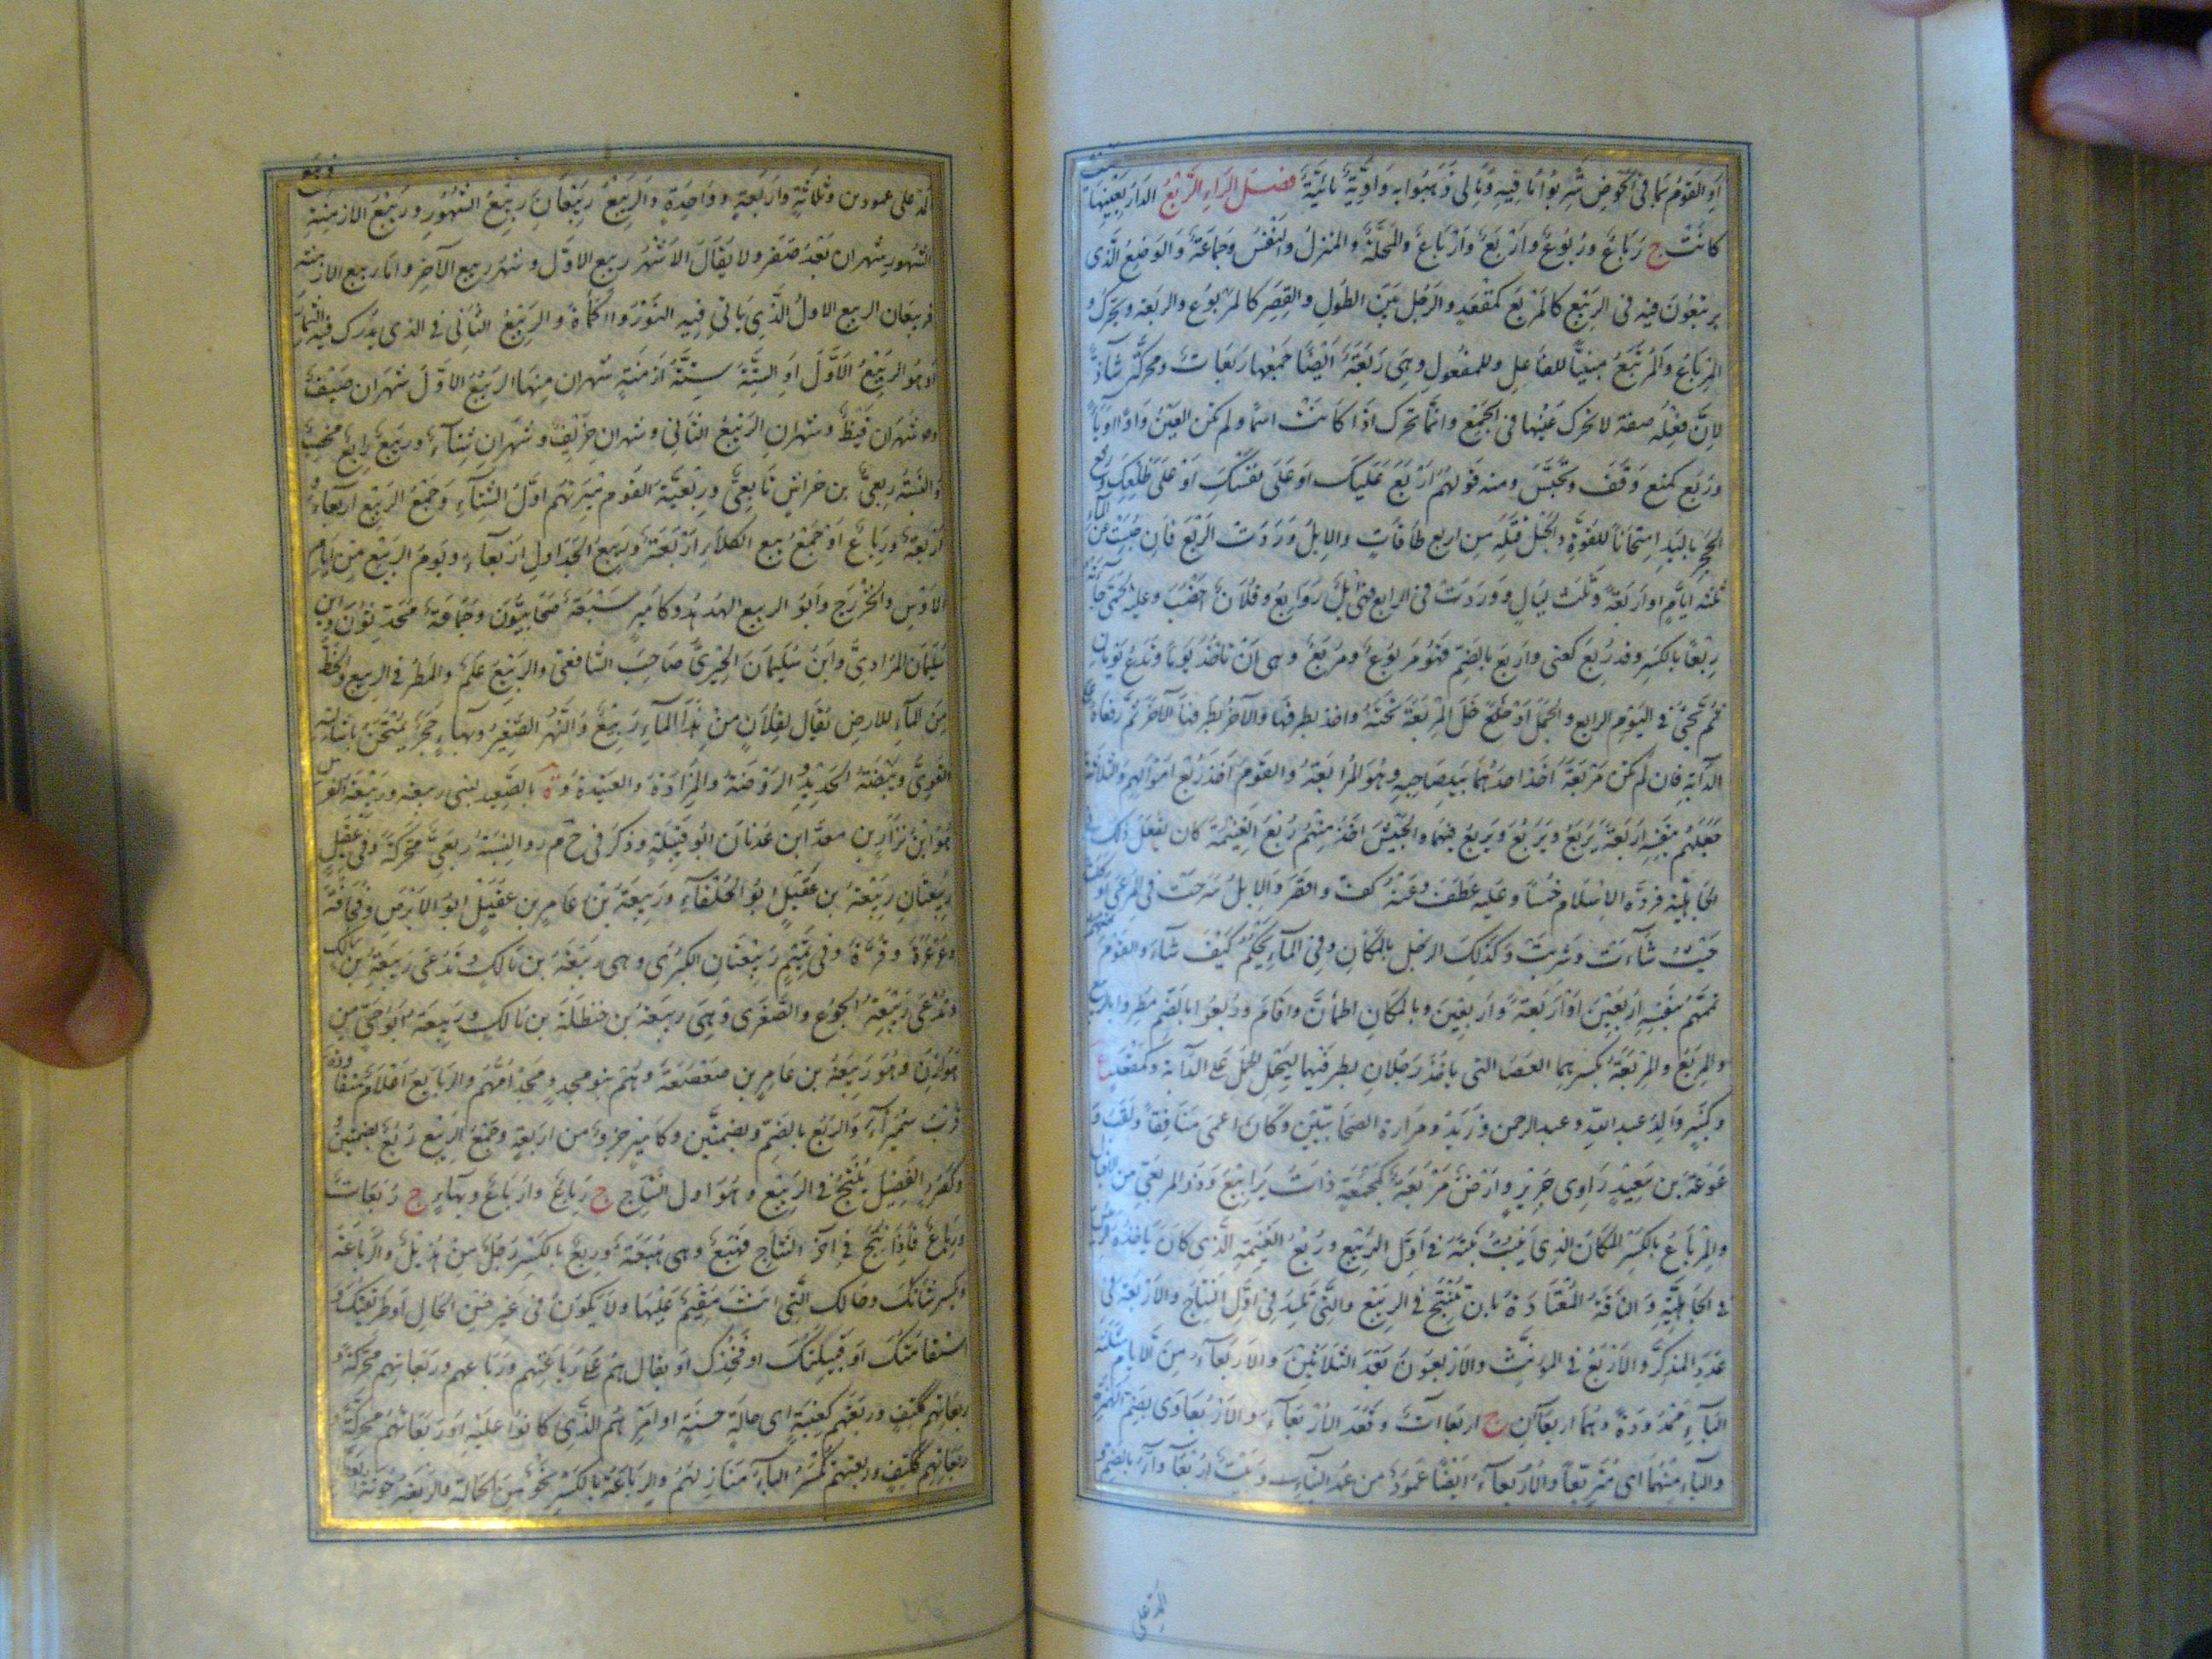 او القوم بما فى الحوض شربوا ما فيه ومالى ذهبوا به واوية يائية فصل الراء الربع الدار بعينها حيث
كانت ج رباع وربوع واربع وارباع والمحلة والمنزل والنعش وجماعة والموضع الذى
يرتبعون فيه فى الربيع كالمربع كمقعد والرجل بين الطول والقصر كالمربوع والربعة ويحرك و
المرباع والمرتبع مبنيا للفاعل وللمفعول وهى ربعة ايضا جمعها ربعات ومحركة شاذ
لان فعلة صفة لا تحرك عينها فى الجمع وانما تحرك اذا كانت اسما ولم تكن العين واوا او ياء
وربع كمنع وقف وتحبس ومنه قولهم اربع عليك او على نفسك او على ظلعك ورفع
الحجر باليد امتحانا للقوة والحبل فتله من اربع طاقات والابل وردت الربع فان حبست عن الماء
ثلثة ايام او اربعة وثلث ليال ووردت فى الرابع فهى ابل روابع وفلان اخصب وعليه الحمى جاءته
ربعا بالكسر وقد ربع كعنى واربع بالضم فهو مربوع ومربع وهى ان تاخذ يوما وتدع يومين
ثم تجىء فى اليوم الرابع والحمل ادخل المربعة تحته واخذ بطرفها والآخر بطرفها الآخر ثم رفعاه على
الدابة فان لم تكن مربعة اخذ احدهما بيد صاحبه وهو المرابعة والقوم اخذ ربع اموالهم والثلاثة
جعلهم بنفسه اربعة يربع ويربع ويربع فيهما والجيش اخذ منهم ربع الغنيمة كان يفعل ذلك فى
الجاهلية فرده الاسلام خمسا وعليه عطف وعنه كف واقصر والابل سرحت فى المرعى واكلت
حيث شاءت وشربت وكذلك الرجل بالمكان وفى الماء تحكم كيف شاء والقوم
تممهم بنفسه اربعين او اربعة واربعين وبالمكان اطمأن واقام وربعوا بالضم مطروا بالربيع
والمربع والمربعة بكسرهما العصا التى ياخذ رجلان بطرفيها ليحمل الحمل على الدابة وكمقعد ع
وكمنبر والد عبد الله وعبد الرحمن وزيد ومرارة الصحابيين وكان اعمى منافقا ولقب و
عوعة بن سعيد راوى جرير وارض مربعة كمجمعة ذات يرابيع وذو المربعى من الاقيال
والمرباع بالكسر المكان الذى ينبت نبته فى اول الربيع وربع الغنيمة الذى كان ياخذه الرئيس
فى الجاهلية والناقة المعتادة بان تنتج فى الربيع والتى تلد فى اول النتاج والاربعة فى
عدد المذكر والاربع فى المؤنث والاربعون بعد الثلاثين والاربعاء من الايام مثلثة
الباء ممدودة وهما اربعاآن ج اربعاآت وقعد الاربعاء والاربعاوى بضم الهمزة
والباء منهما اى متربعا والاربعاء ايضا عمود من عمد البناء وبيت اربعاواء بالضم و
المد على
المد على عمودين وثلاثة واربعة وواحدة والربيع ربيعان ربيع الشهور وربيع الازمنة فربيع
الشهور شهران بعد صفر ولا يقال الا شهر ربيع الاول وشهر ربيع الآخر واما ربيع الازمنة
فربيعان الربيع الاول الذى ياتى فيه النور والكمأة والربيع الثانى الذى يدرك فيه الثمار
او هو الربيع الاول او السنة ستة ازمنة شهران منها الربيع الاول شهران صيف
وشهران قيظ وشهران الربيع الثانى وشهران خريف وشهران شتاء وربيع رابع مخصب
والنسبة ربعى وربعى بن خراش تابعى وربعية القوم ميرتهم اول الشتاء وجمع الربيع اربعاء و
اربعة ورباع او جمع ربيع الكلاء اربعة وربيع الجداول اربعاء ويوم الربيع من ايام
الاوس والخزرج وابو الربيع الهدهد وكامير سبعة صحابيون وجماعة محدثون وابن
سليمان المرادى وابن سليمان الجيزى صاحب الشافعى والربيع علم والمطر فى الربيع والحظ
من الماء للارض يقال لفلان من هذا الماء ربيع والنهر الصغير وبهاء حجر يمتحن باشالته
القوى وبيضة الحديد والروضة والمزادة والعتيدة وة بالصعيد لبنى ربيعة وربيعة الفرس
هو ابن نزار بن معد ابن عدنان ابو قبيلة وذكر فى ح م ر والنسبة ربعى محركة وفى عقيل
ربيعتان ربيعة بن عقيل ابو الخلعاء وربيعة بن عامر بن عقيل ابو الابرص وقحافة
وعرعرة وقرة وفى تميم ربيعتان الكبرى وهى ربيعة بن مالك وتدعى ربيعة بن مالك
وتدعى ربيعة الجوع والصغرى وهى ربيعة بن حنظلة بن مالك وربيعة ابو حى من
هوازن وهو ربيعة بن عامر بن صعصعة وهم بنو مجد ومجد امهم والربايع اعلام متقاودة
قرب سميراء والربع بالضم وبضمتين وكامير جزء من اربعة وجمع الربيع ربع بضمتين
وكصرد الفصيل ينتج فى الربيع وهو اول النتاج ج رباع وارباع وبهاء ج ربعات
ورباع فاذا نتج فى آخر النتاج فهبع وهى هبعة وربع بالكسر رجل من هذيل والرباعة
وتكسر شانك وحالك التى انت مقيم عليها ولا يكون فى غير حسن الحال او طريقتك و
استقامتك او قبيلتك او فخذك او يقال هم على رباعتهم ورباعهم وربعاتهم محركة و
ربعاتهم ككتف وربعتهم كعنبة اى حالة حسنة او امرهم الذى كانوا عليه او ربعاتهم محركة و
ربعاتهم ككتف وربعتهم بكسر الباء منازلهم والرباعة بالكسر نحو من الحمالة والربعة جونة